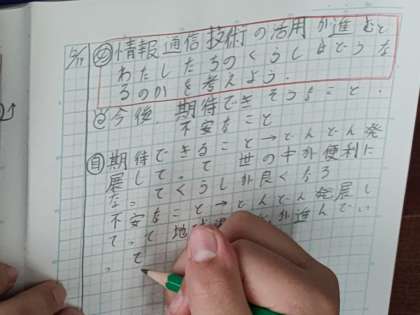 5/17
め 情報通信技術の活用が進むと
わたしたちのくらしはどうな
るのかを考えよう。
と 今後、期待できそうなこと・
不安なこと
自 期待できること→どんどん発
展していって、世の中が便利に
な ってくらしが良くなる
不安なこと→どんどん発展し
てって 地 が進んでい
って